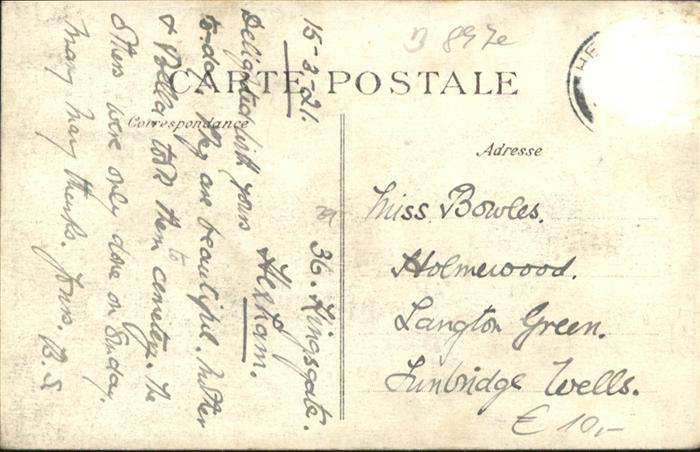 B 897e
CARTE POSTALE
Correspondance
Adresse
HE
15-3-21. 36. Kingsgate.
Hexham.
Delighted with yours
to-day. They are beautiful. Mother
& Bella took them to cemetery. The
others were only done on Sunday.
Many many thanks. Yours. B. S
Miss Bowles.
Holmewood.
Langton Green.
Tunbridge Wells.
€ 10,-